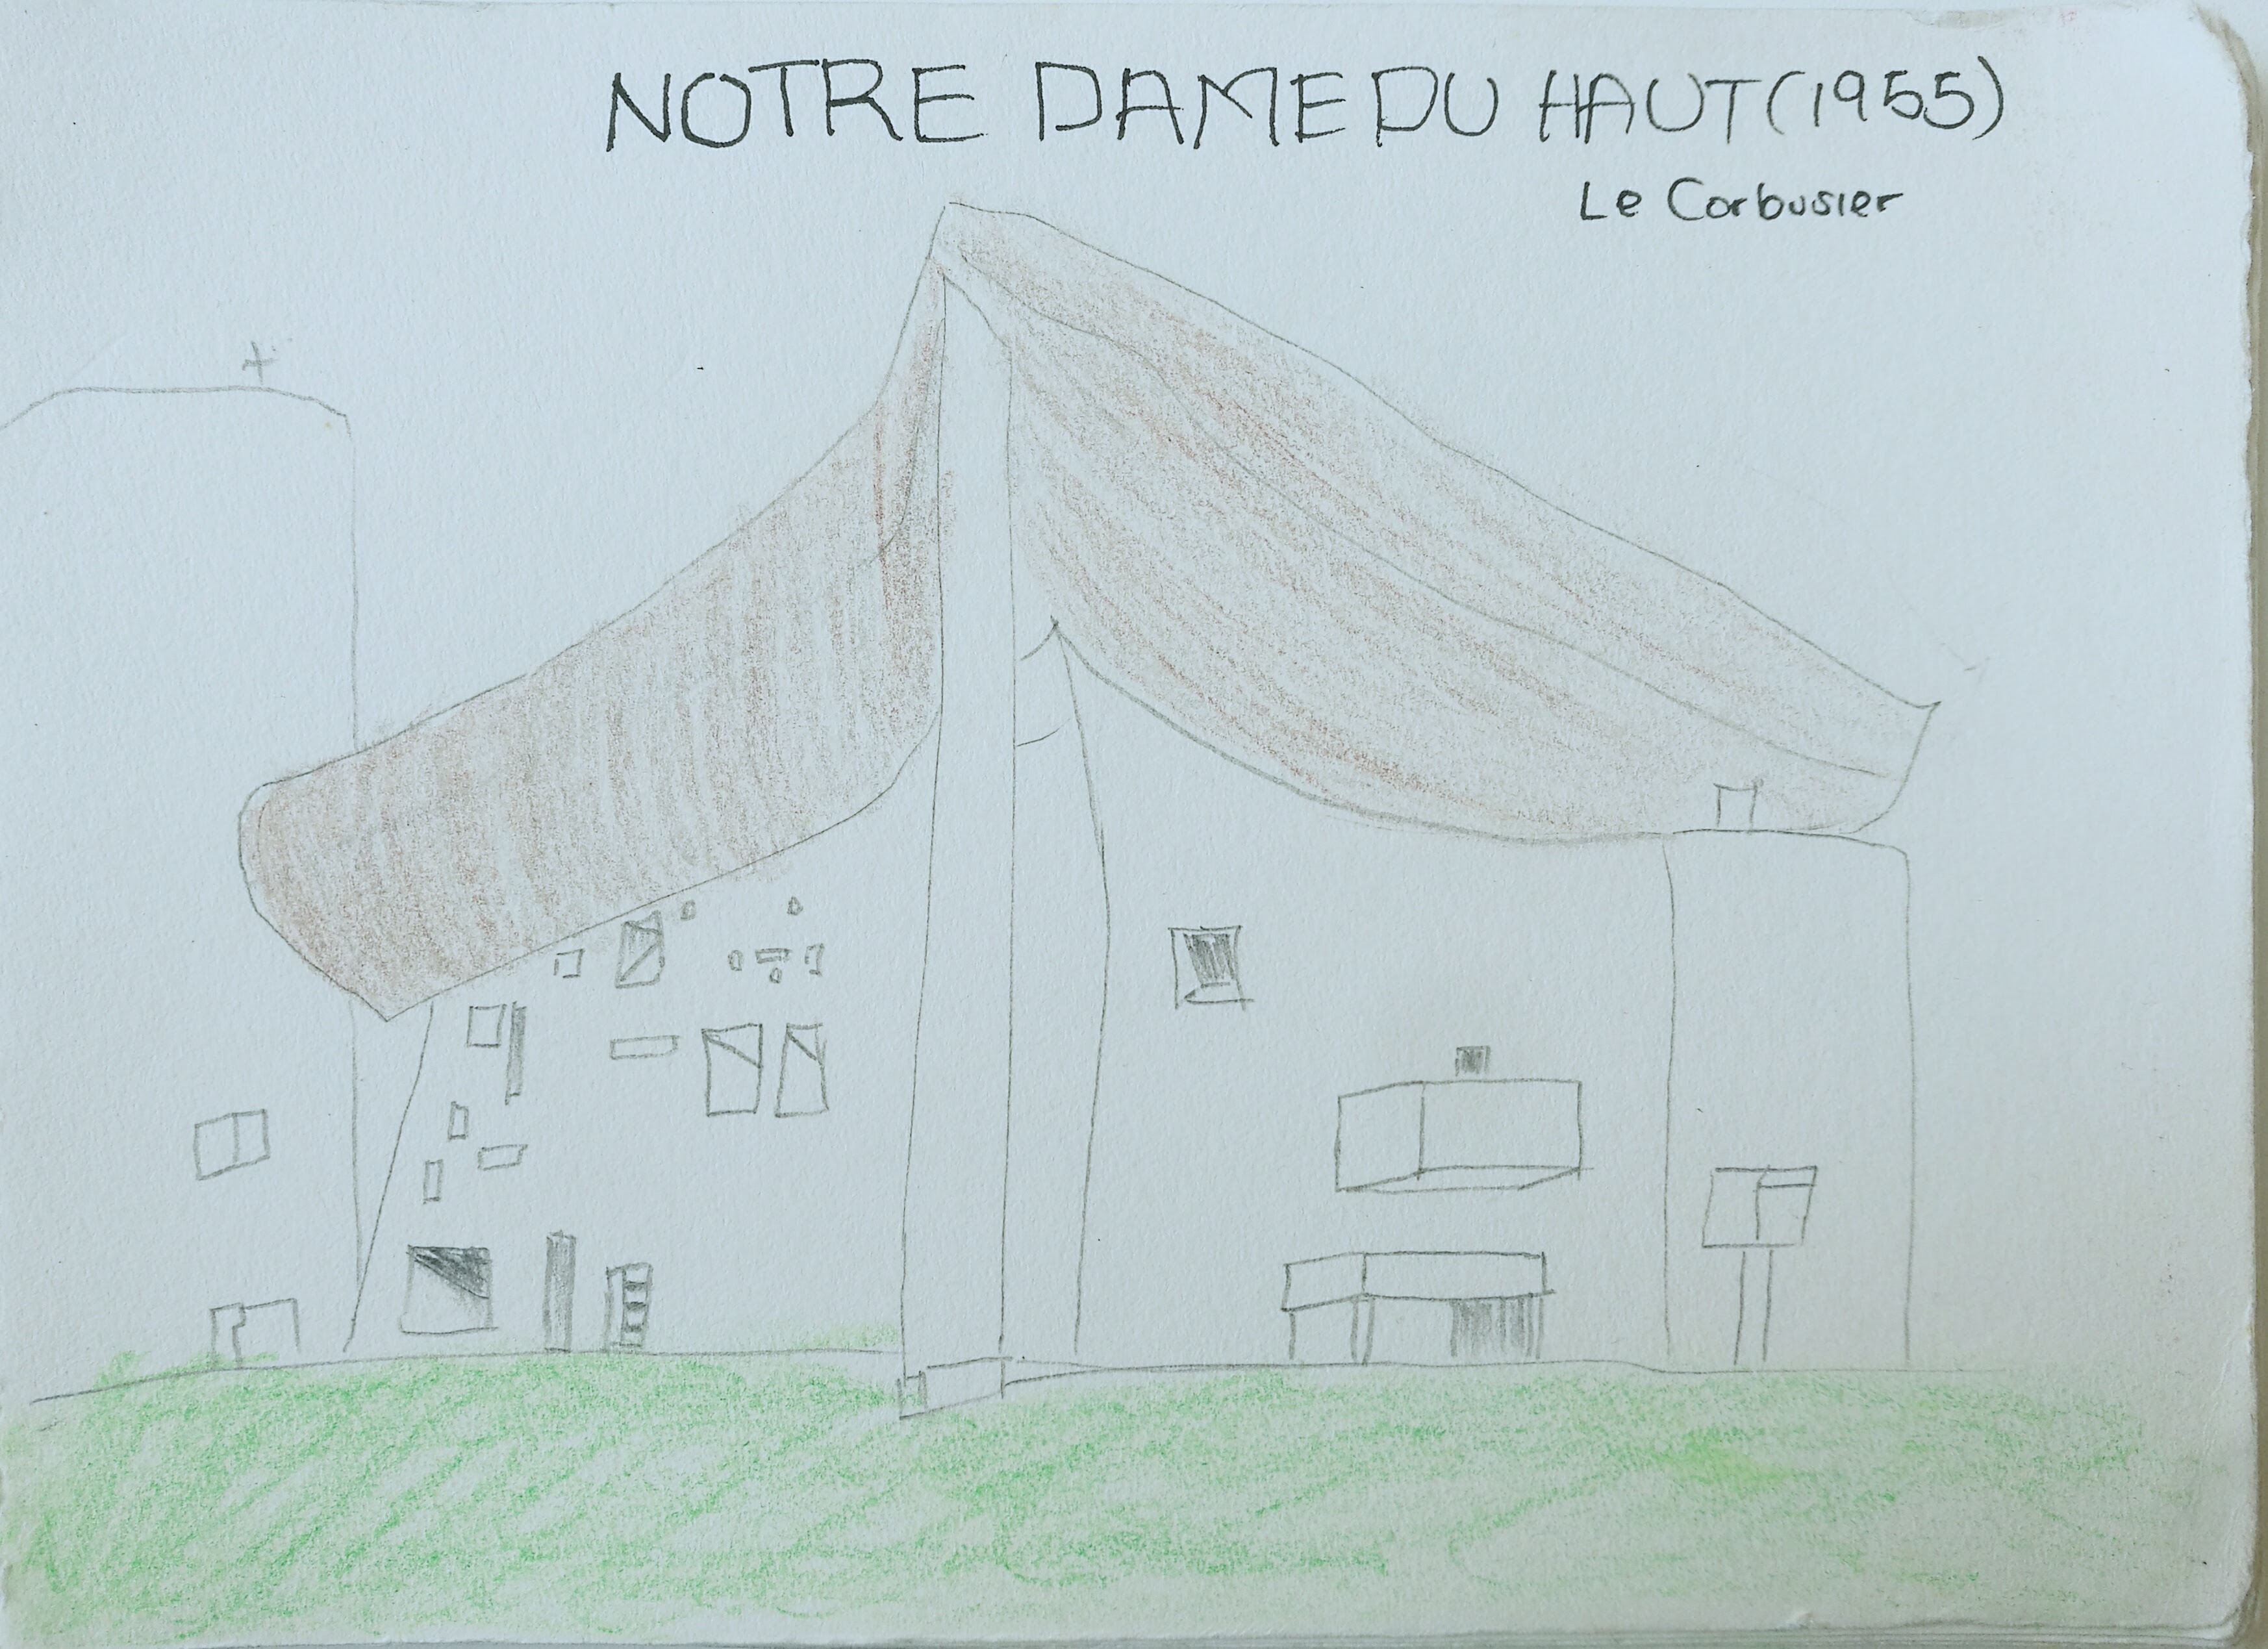 NOTRE DAME DU HAUT (1955)
Le Corbusier